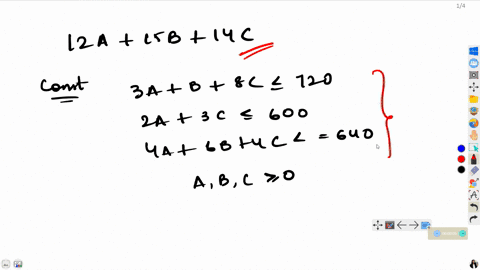 12A + 15B + 14C
Const
3A + B + 8C ≤ 720
2A + 3C ≤ 600
4A + 6B + 4C < = 640
A, B, C ⩾ 0
1/4